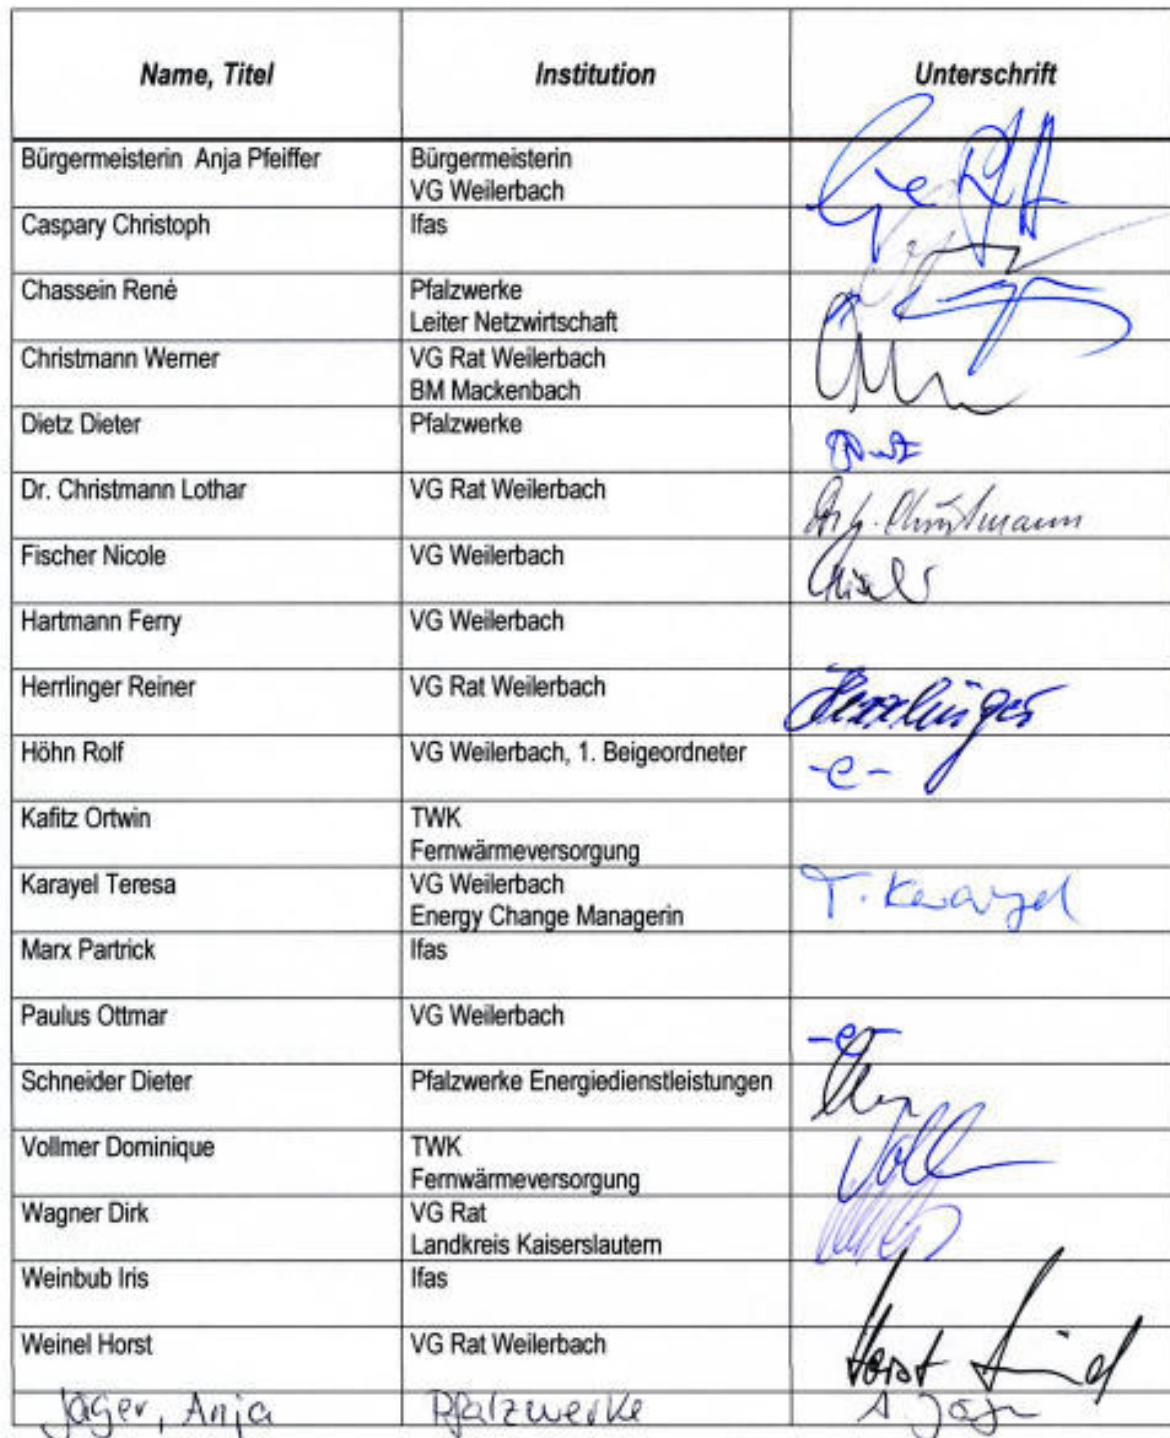 Name, Titel Institution Unterschrift
Bürgermeisterin Anja Pfeiffer Bürgermeisterin
VG Weilerbach
Caspary Christoph Ifas
Chassein René Pfalzwerke
Leiter Netzwirtschaft
Christmann Werner VG Rat Weilerbach
BM Mackenbach
Dietz Dieter Pfalzwerke
Dr. Christmann Lothar VG Rat Weilerbach Christmann
Fischer Nicole VG Weilerbach
Hartmann Ferry VG Weilerbach
Herrlinger Reiner VG Rat Weilerbach Herrlinger
Höhn Rolf VG Weilerbach, 1. Beigeordneter -e-
Kafitz Ortwin TWK
Fernwärmeversorgung
Karayel Teresa VG Weilerbach T. Karayel
Energy Change Managerin
Marx Partrick Ifas
Paulus Ottmar VG Weilerbach -e-
Schneider Dieter Pfalzwerke Energiedienstleistungen
Vollmer Dominique TWK
Fernwärmeversorgung
Wagner Dirk VG Rat
Landkreis Kaiserslautern
Weinbub Iris Ifas
Weinel Horst VG Rat Weilerbach Horst
Jäger, Anja Pfalzwerke A. Jäger